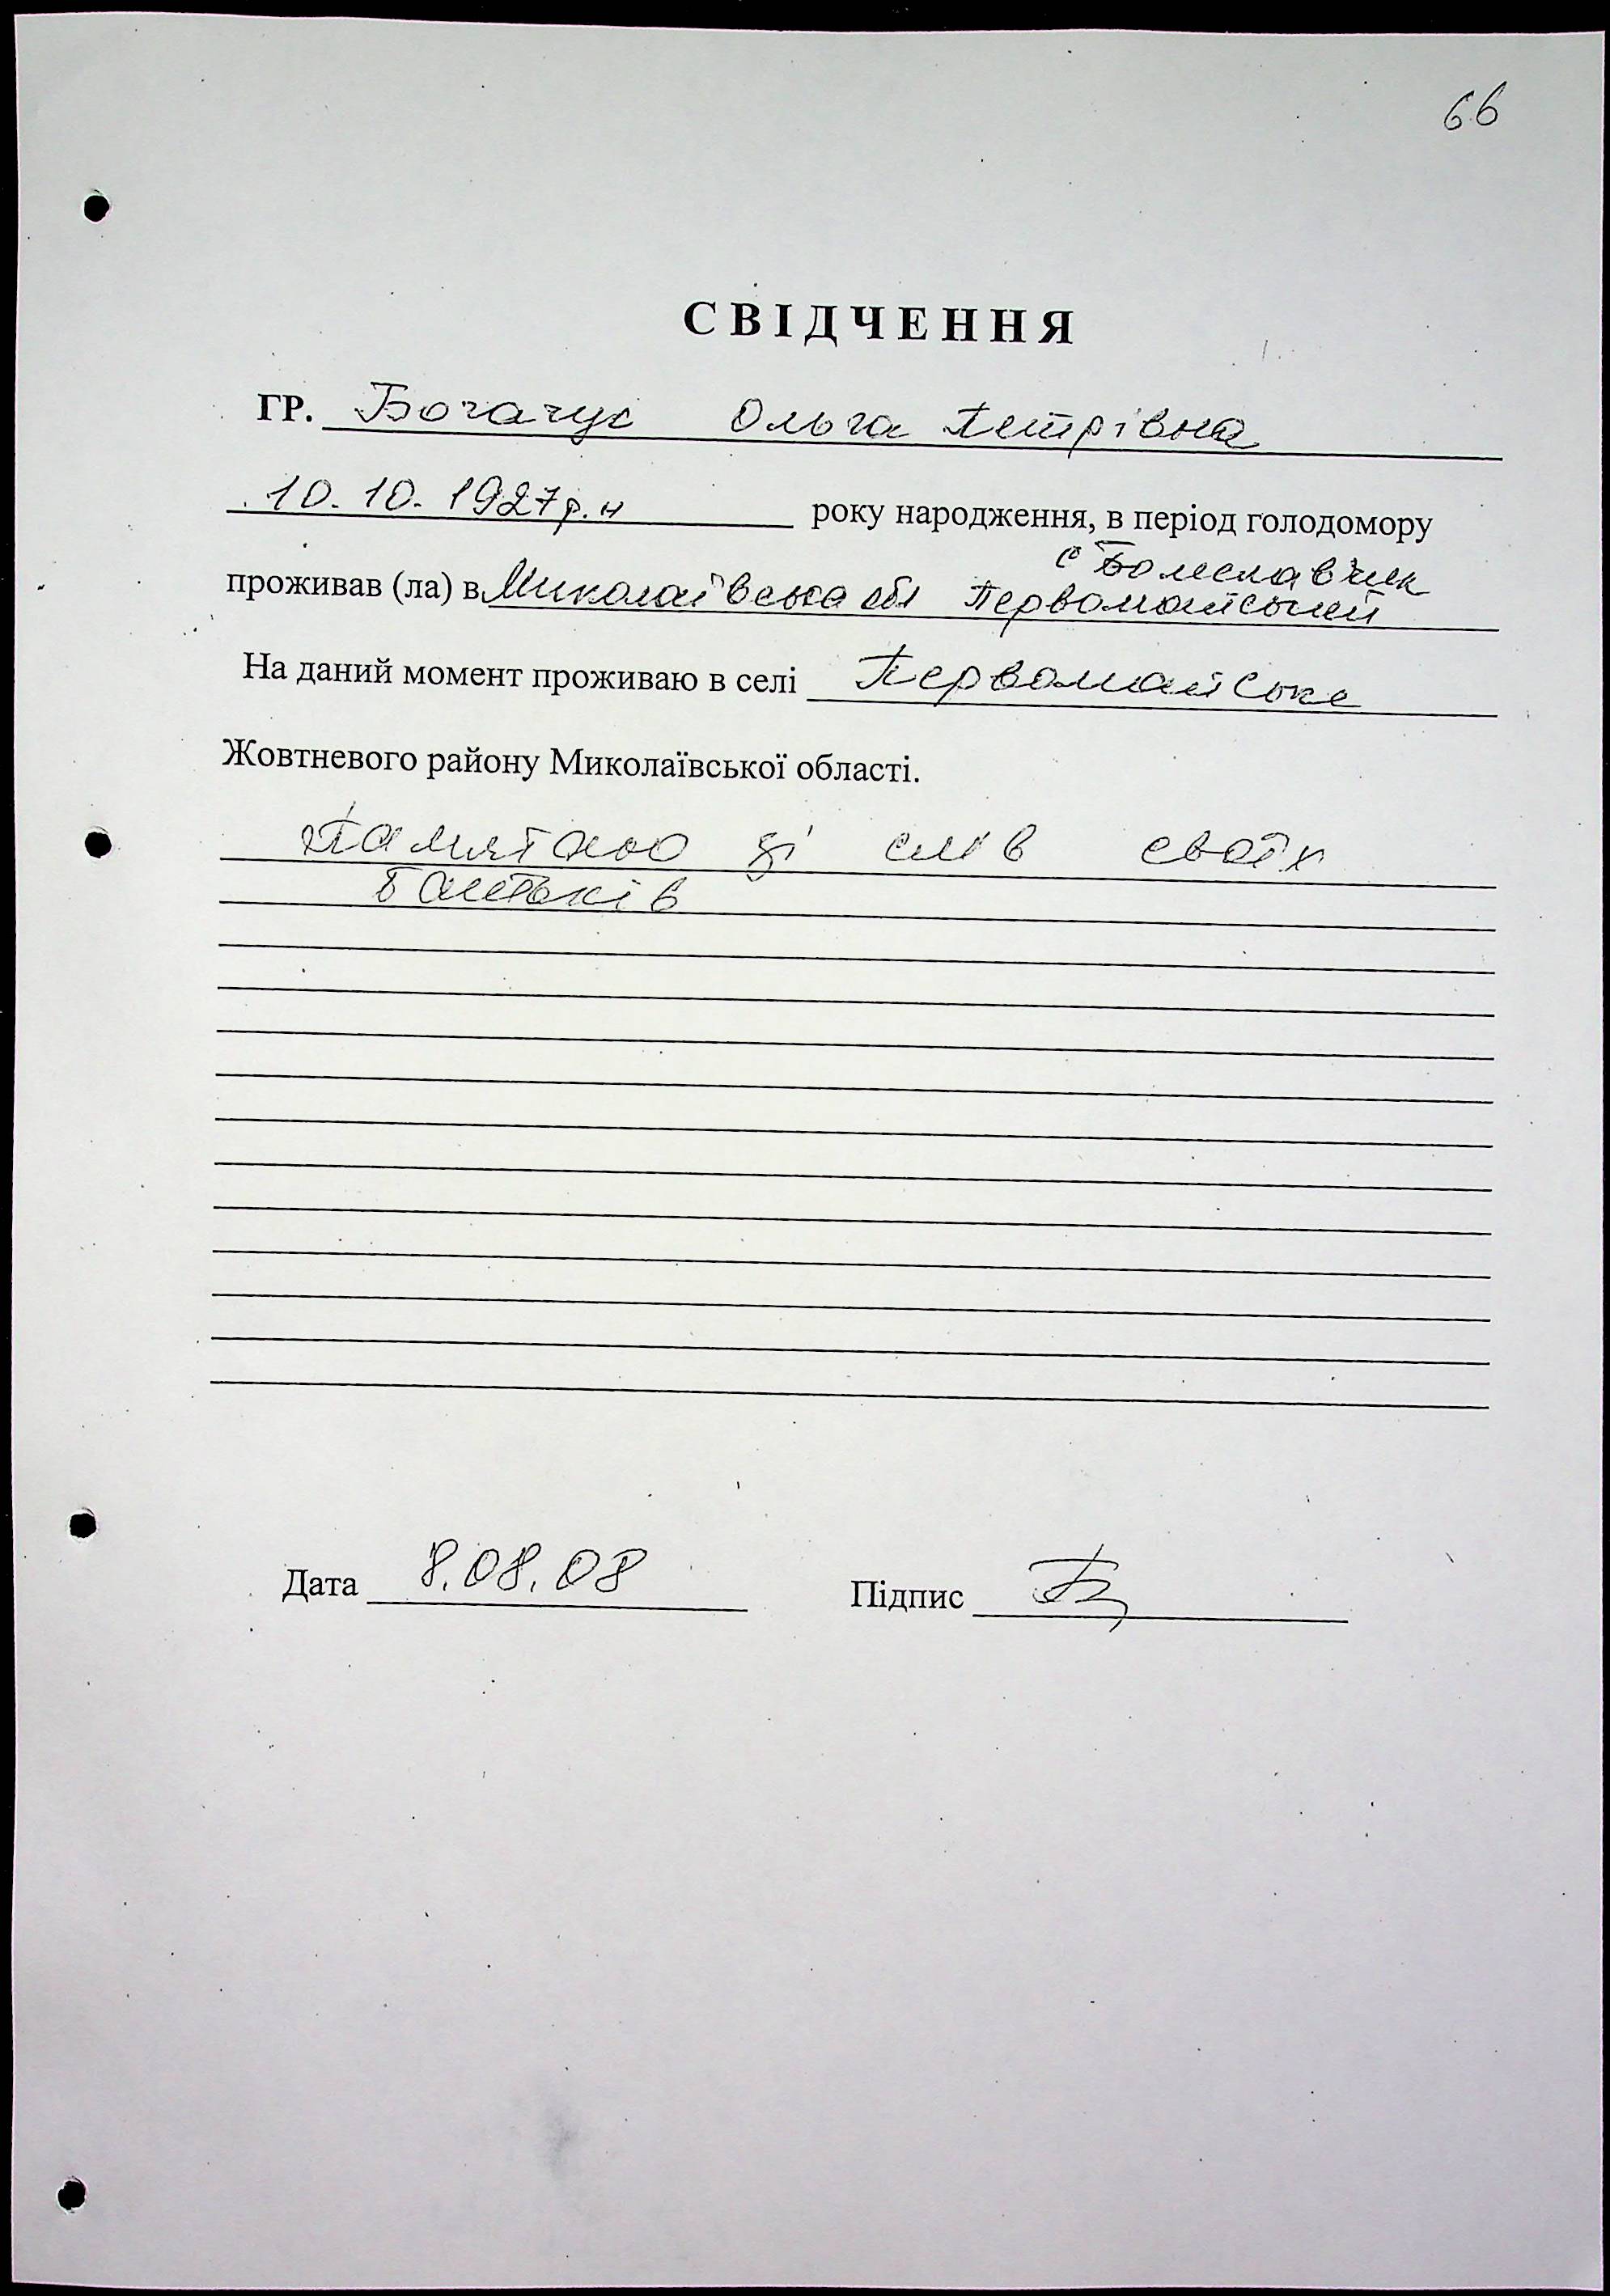 66
СВІДЧЕННЯ
ГР. Богачук Ольга Петрівна
10.10.1927р.н року народження, в період голодомору
с Болеславчик
проживав (ла) в Миколаївська обл Первомайський
На даний момент проживаю в селі Первомайське
Жовтневого району Миколаївської області.
Памятаю зі слів своїх
батьків
Дата 8.08.08 Підпис